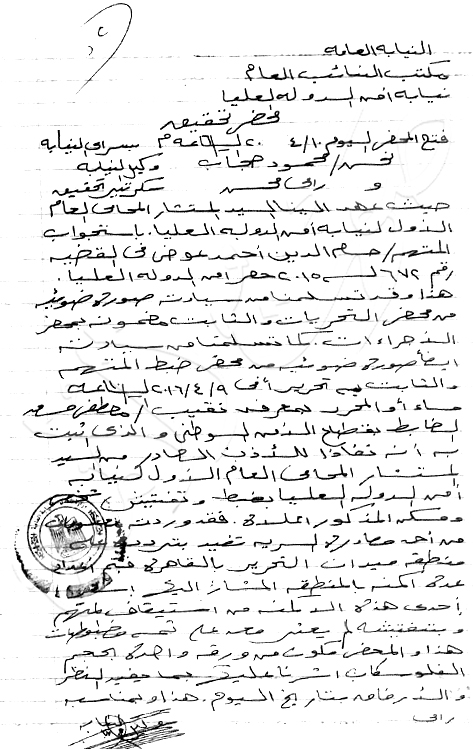 النيابة العامة
مكتب النائب العام
نيابة أمن الدولة العليا
محضر تحقيق
فتح المحضر اليوم ٤/١٠ الساعة م بسراى النيابة
نحن/ محمود حجاب وكيل النيابة
و رامى محسن سكرتير التحقيق
حيث عهد الينا السيد المستشار المحامى العام
الأول لنيابة أمن الدولة العليا باستجواب
المتهم/ حسام الدين أحمد عوض فى القضية
رقم ٦٧٢ لسنة ٢٠١٥ حصر أمن الدولة العليا.
هذا وقد تسلمنا من سيادته صورة ضوئية
من محضر التحريات والثابت مضمونه بمحضر
الاجراءات. كما تسلمنا من سيادته
ايضا صورة ضوئية من محضر ضبط المتهم
والثابت به تحريره فى ٢٠١٦/٤/٩ الساعة
مساءً والمحرر بمعرفة نقيب/ مصطفى
الضابط بقطاع الأمن الوطنى والذى اثبت
به أنه نفاذا للأذن الصادر من السيد
المستشار المحامى العام الأول لنيابة
أمن الدولة العليا بضبط وتفتيش شخص
ومسكن المذكور اعلاه. فقد وردت معلومات
من أحد مصادره السرية تفيد بتردده على
منطقة ميدان التحرير بالقاهرة فتم اعداد
عدة أكمنة بالمنطقة المشار اليها
أحدى هذه الأكمنة من استيقاف المتهم
وبتفتيشه لم يعثر معه على ثمة مضبوطات
هذا والمحضر مكون من ورقة واحدة بحجم
الفلوسكاب اشرنا عليه بما يفيد النظر
والارفاق بتاريخ اليوم. هذا وبمناسبة
رامى وكيل النيابة